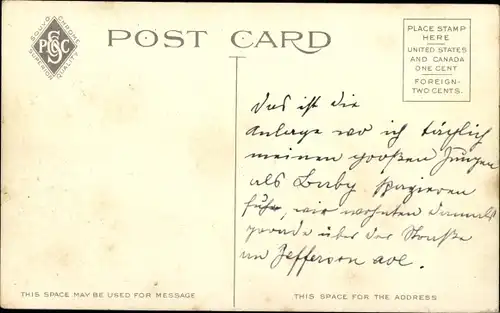 SOUVO CHROME
PSC
SUPERIOR QUALITY
POST CARD
PLACE STAMP
HERE
UNITED STATES
AND CANADA
ONE CENT
FOREIGN-
TWO CENTS.
Das ist die
Anlage wo ich täglich
meinen großen Jungen
als Baby spazieren
fuhr, wir wohnten damals
gerade über der Straße
in Jefferson ave.
THIS SPACE MAY BE USED FOR MESSAGE
THIS SPACE FOR THE ADDRESS